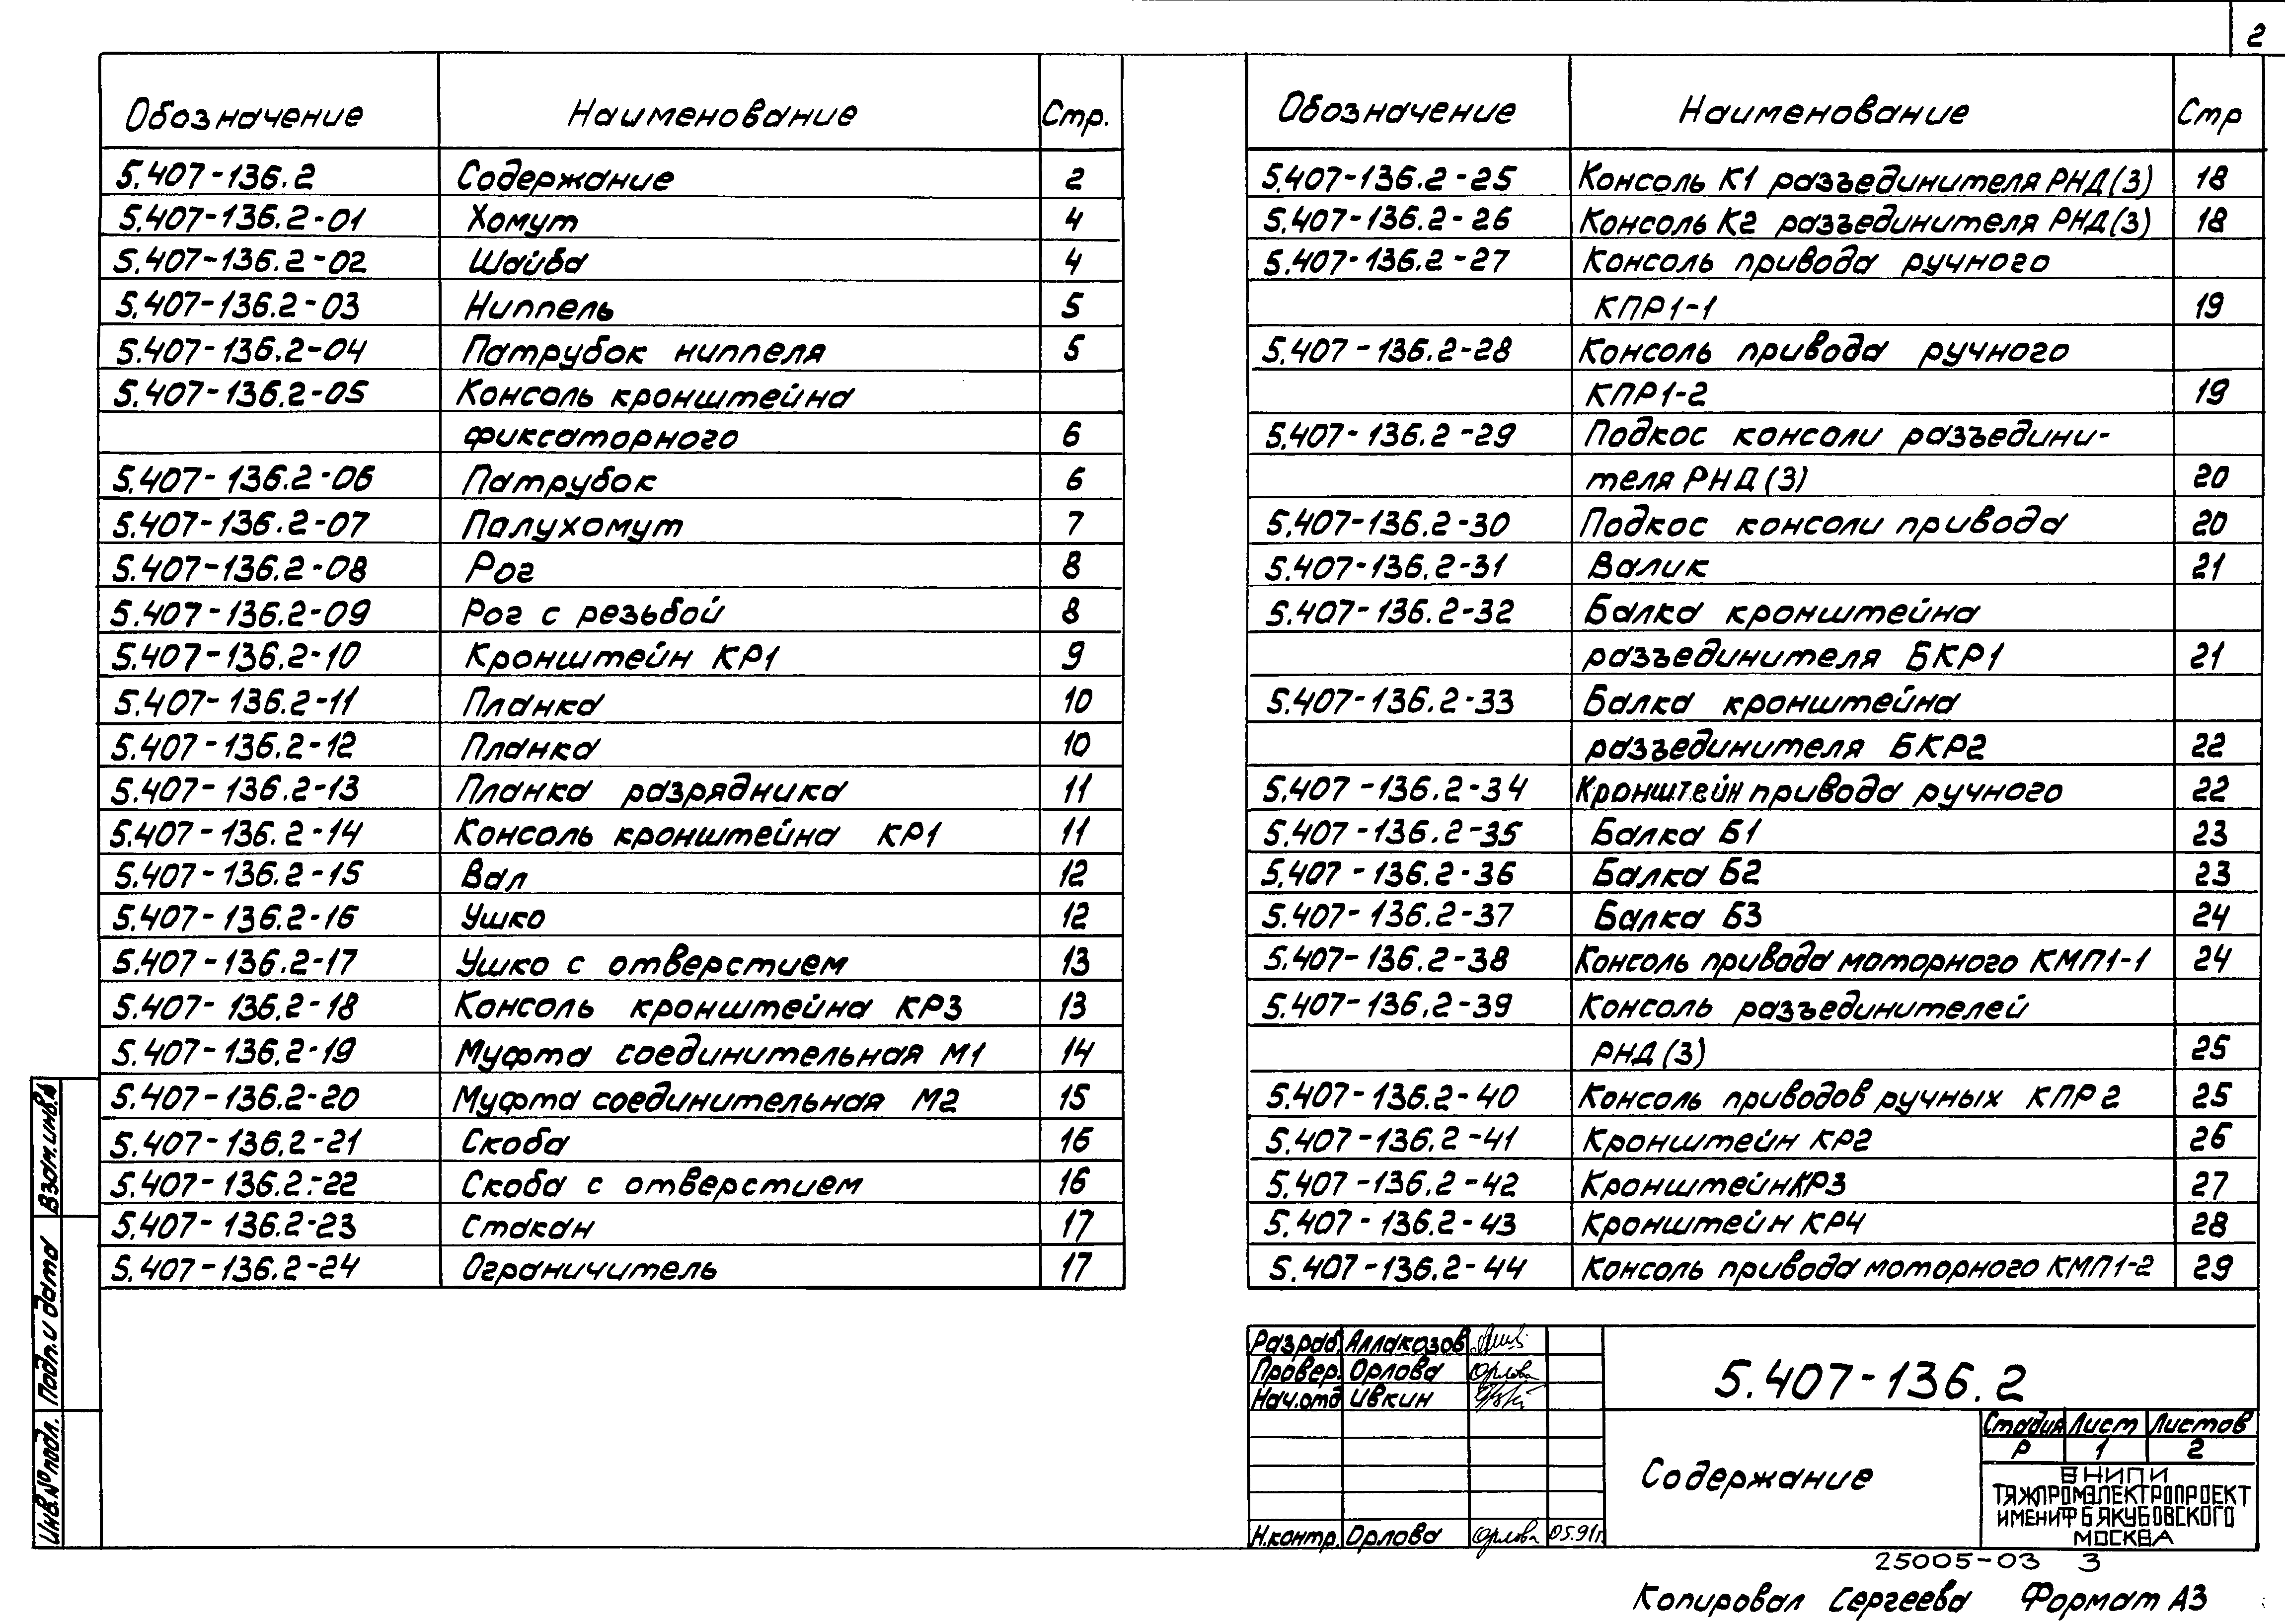 2
Обозначение Наименование Стр.
5.407-136.2 Содержание 2
5.407-136.2-01 Хомут 4
5.407-136.2-02 Шайба 4
5.407-136.2-03 Ниппель 5
5.407-136.2-04 Патрубок ниппеля 5
5.407-136.2-05 Консоль кронштейна
фиксаторного 6
5.407-136.2-06 Патрубок 6
5.407-136.2-07 Палухомут 7
5.407-136.2-08 Рог 8
5.407-136.2-09 Рог с резьбой 8
5.407-136.2-10 Кронштейн КР1 9
5.407-136.2-11 Планка 10
5.407-136.2-12 Планка 10
5.407-136.2-13 Планка разрядника 11
5.407-136.2-14 Консоль кронштейна КР1 11
5.407-136.2-15 Вал 12
5.407-136.2-16 Ушко 12
5.407-136.2-17 Ушко с отверстием 13
5.407-136.2-18 Консоль кронштейна КР3 13
5.407-136.2-19 Муфта соединительная М1 14
5.407-136.2-20 Муфта соединительная М2 15
5.407-136.2-21 Скоба 16
5.407-136.2-22 Скоба с отверстием 16
5.407-136.2-23 Стакан 17
5.407-136.2-24 Ограничитель 17
Обозначение Наименование Стр
5.407-136.2-25 Консоль К1 разъединителя РНД(З) 18
5.407-136.2-26 Консоль К2 разъединителя РНД(З) 18
5.407-136.2-27 Консоль привода ручного
КПР1-1 19
5.407-136.2-28 Консоль привода ручного
КПР1-2 19
5.407-136.2-29 Подкос консоли разъедини-
теля РНД(З) 20
5.407-136.2-30 Подкос консоли привода 20
5.407-136.2-31 Валик 21
5.407-136.2-32 Балка кронштейна
разъединителя БКР1 21
5.407-136.2-33 Балка кронштейна
разъединителя БКР2 22
5.407-136.2-34 Кронштейн привода ручного 22
5.407-136.2-35 Балка Б1 23
5.407-136.2-36 Балка Б2 23
5.407-136.2-37 Балка Б3 24
5.407-136.2-38 Консоль привода моторного КМП1-1 24
5.407-136.2-39 Консоль разъединителей
РНД(З) 25
5.407-136.2-40 Консоль приводов ручных КПР2 25
5.407-136.2-41 Кронштейн КР2 26
5.407-136.2-42 Кронштейн КР3 27
5.407-136.2-43 Кронштейн КР4 28
5.407-136.2-44 Консоль привода моторного КМП1-2 29
Взам.инв.№
Подп.и дата
Инв.№ подл.
Разраб. Аллакозов
Провер. Орлова Орлова
Нач.отд Ивкин
Н.контр. Орлова Орлова 05.91г.
5.407-136.2
Содержание
Стадия Лист Листов
Р 1 2
ВНИПИ
ТЯЖПРОМЭЛЕКТРОПРОЕКТ
ИМЕНИ Ф Б ЯКУБОВСКОГО
МОСКВА
25005-03 3
Копировал Сергеева Формат А3